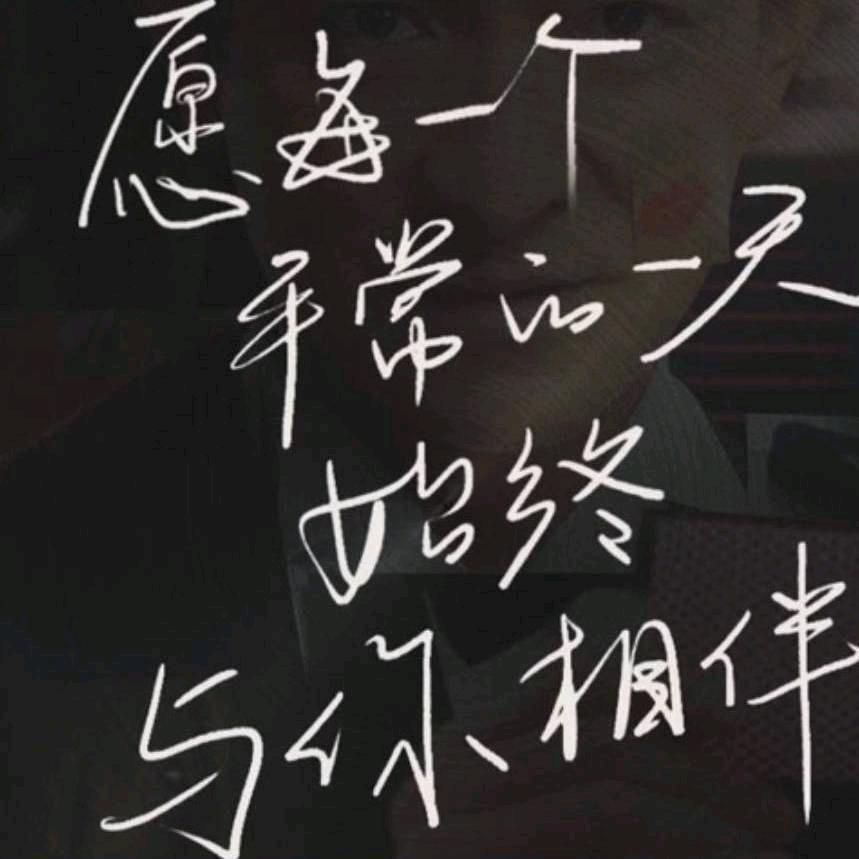 愿每一个
平常的一天
始终
与你相伴